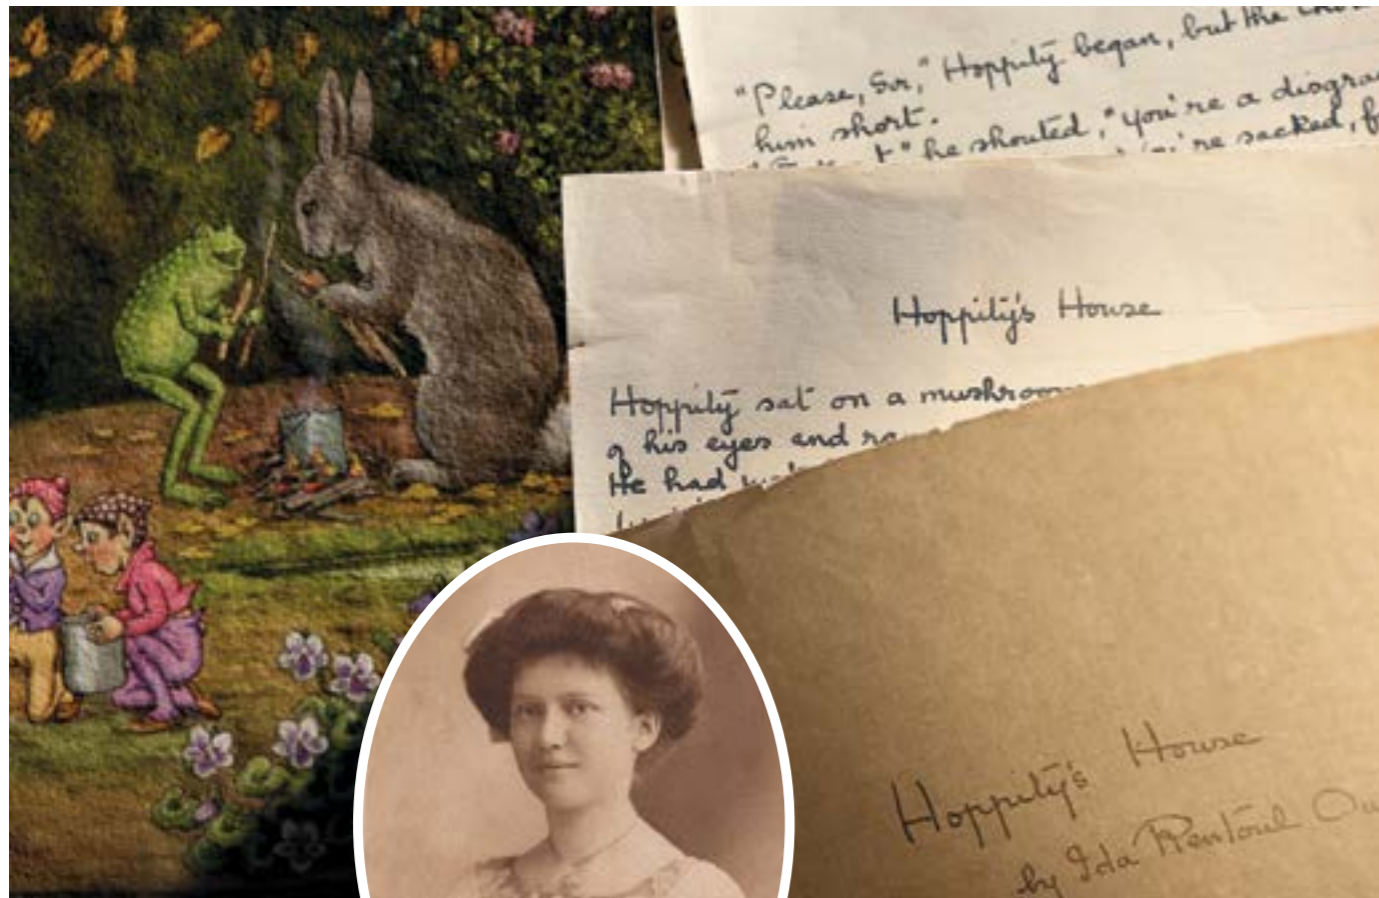 "Please, Sir," Hoppity began, but the
him short.
he shouted, "you're a
're sacked,
Hoppity's House
Hoppity sat on a
of his eyes and
He had
Hoppity's House
by Ida Rentoul